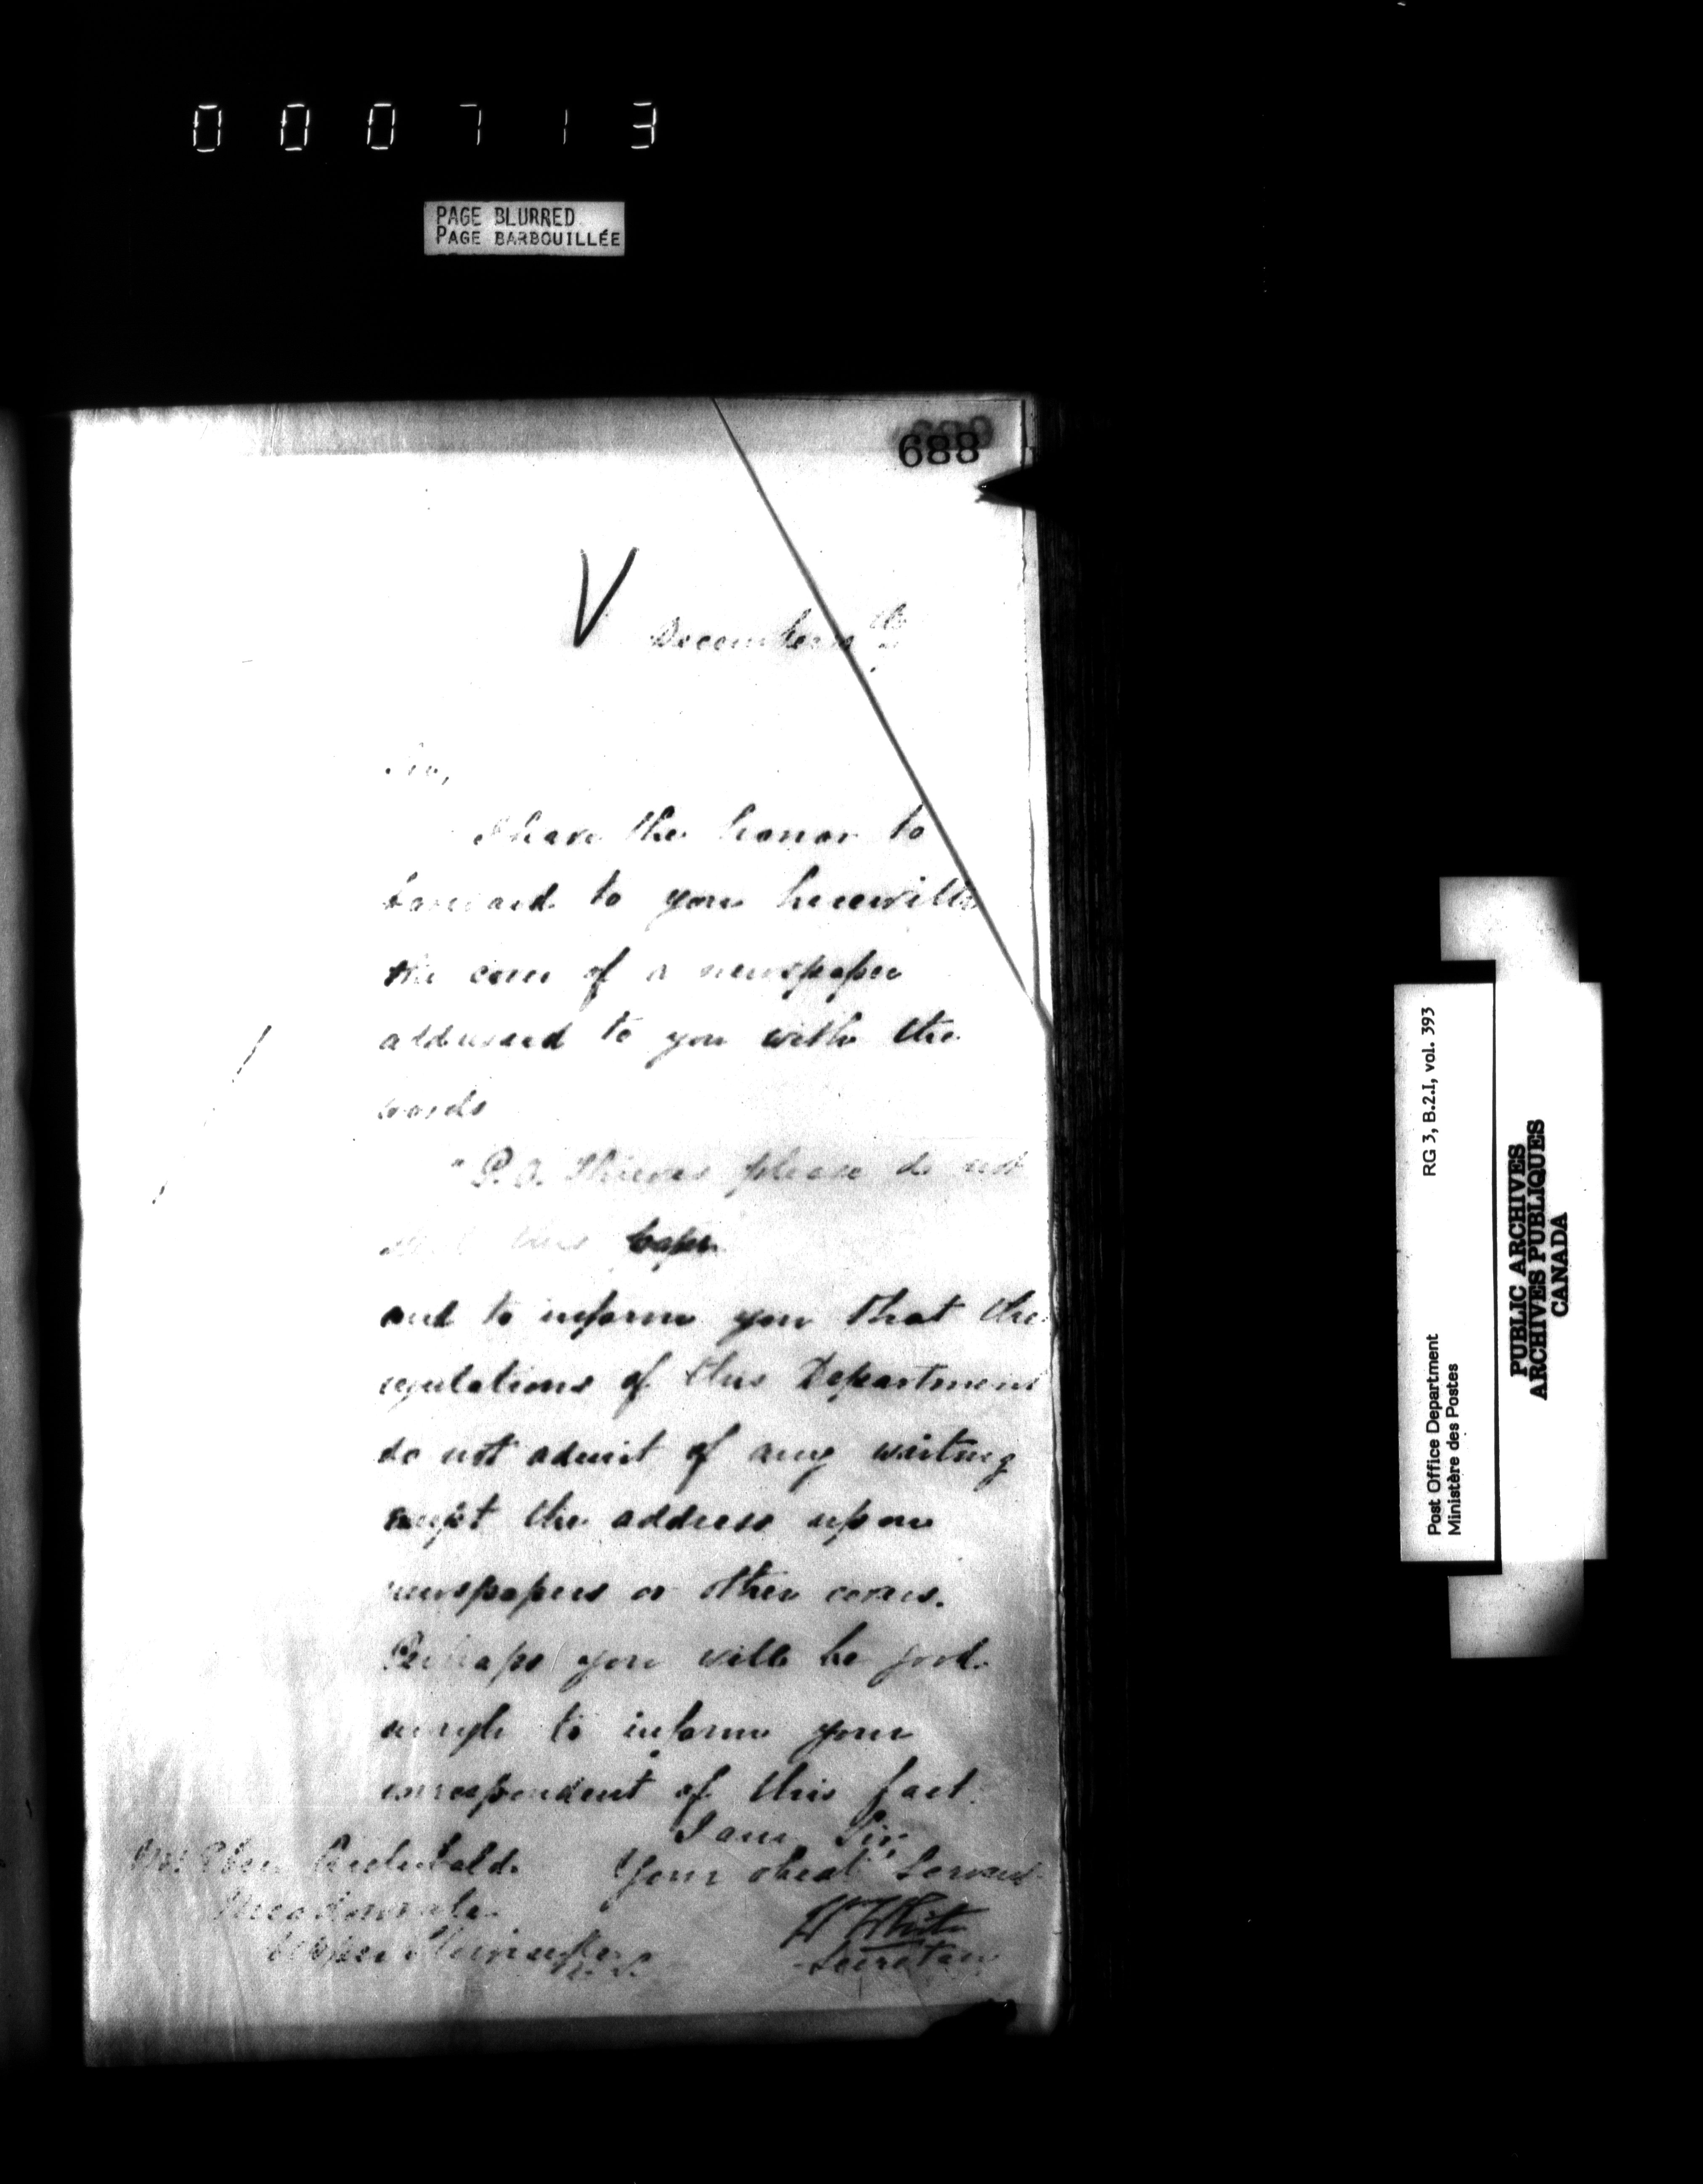 000713
PAGE BLURRED
PAGE BARBOUILLÉE
688
December th
Sir,
I have the honor to
forward to you herewith
the cover of a newspaper
addressed to you with the
words
" P.O. Thieves please do not
steal this paper
and to inform you that the
regulations of this Department
do not admit of any writing
except the address upon
newspapers or other covers.
Perhaps you will be good
enough to inform your
correspondent of this fact.
I am, Sir,
Your obedt Servant
W White
Secretary
Mr. Eben Archibald
Meadowvale
Upper N.S.
RG 3, B.2.1, vol. 393
Post Office Department
Ministère des Postes
PUBLIC ARCHIVES
ARCHIVES PUBLIQUES
CANADA